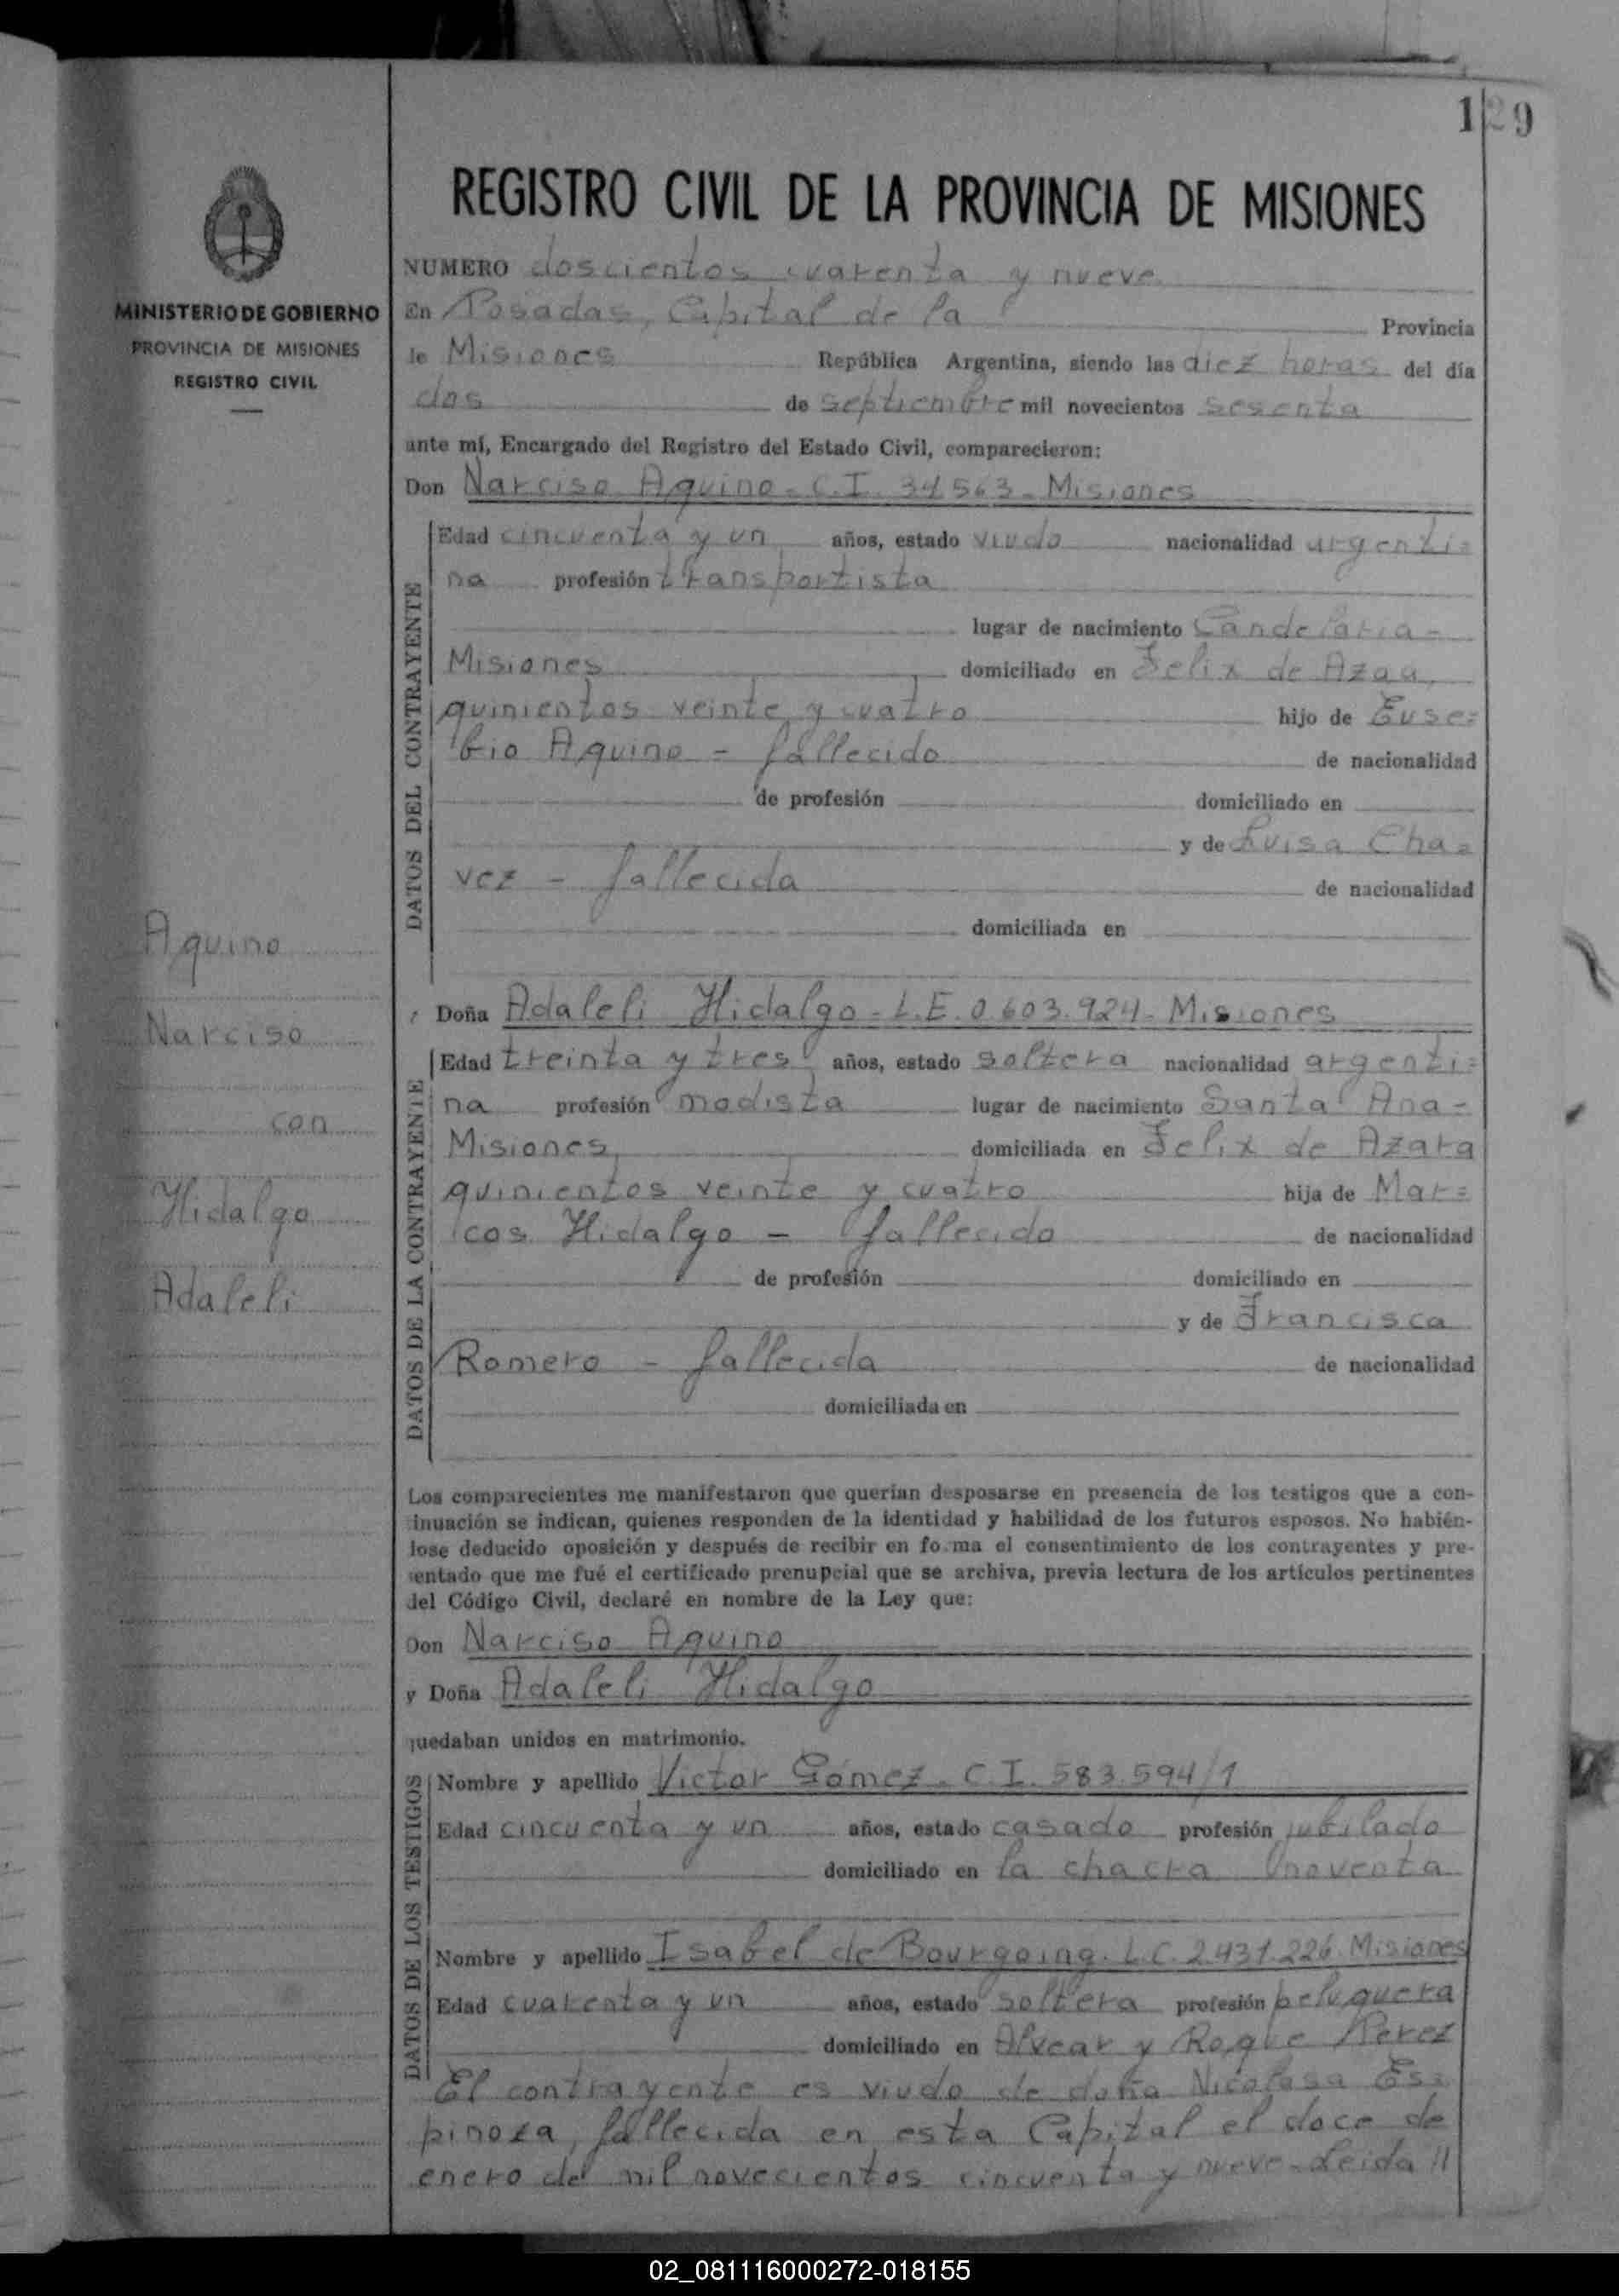 129
REGISTRO CIVIL DE LA PROVINCIA DE MISIONES
NUMERO doscientos cuarenta y nueve
MINISTERIO DE GOBIERNO
PROVINCIA DE MISIONES
REGISTRO CIVIL
En Posadas, Capital de la Provincia
de Misiones República Argentina, siendo las diez horas del día
dos de septiembre mil novecientos sesenta
ante mí, Encargado del Registro del Estado Civil, comparecieron:
Don Narciso Aquino - C.I. 34563 - Misiones
DATOS DEL CONTRAYENTE
Edad cincuenta y un años, estado viudo nacionalidad argenti=
na profesión transportista
lugar de nacimiento Candelaria -
Misiones domiciliado en Felix de Azaa,
quinientos veinte y cuatro hijo de Euse=
bio Aquino - fallecido de nacionalidad
de profesión domiciliado en
y de Luisa Cha=
vez - fallecida de nacionalidad
domiciliada en
Aquino
Narciso
con
Hidalgo
Adaleli
Doña Adaleli Hidalgo - L.E. 0.603.924 - Misiones
DATOS DE LA CONTRAYENTE
Edad treinta y tres años, estado soltera nacionalidad argenti=
na profesión modista lugar de nacimiento Santa Ana -
Misiones domiciliada en Felix de Azara
quinientos veinte y cuatro hija de Mar=
cos Hidalgo - fallecido de nacionalidad
de profesión domiciliado en
y de Francisca
Romero - fallecida de nacionalidad
domiciliada en
Los comparecientes me manifestaron que querían desposarse en presencia de los testigos que a con-
inuación se indican, quienes responden de la identidad y habilidad de los futuros esposos. No habién-
lose deducido oposición y después de recibir en fo ma el consentimiento de los contrayentes y pre-
sentado que me fué el certificado prenupcial que se archiva, previa lectura de los artículos pertinentes
del Código Civil, declaré en nombre de la Ley que:
Don Narciso Aquino
y Doña Adaleli Hidalgo
quedaban unidos en matrimonio.
DATOS DE LOS TESTIGOS
Nombre y apellido Victor Gómez - C.I. 583.594/1
Edad cincuenta y un años, estado casado profesión jubilado
domiciliado en la chacra noventa
Nombre y apellido Isabel de Bourgoing - L.C. 2.431.226 Misiones
Edad cuarenta y un años, estado soltera profesión peluquera
domiciliado en Alvear y Roque Perez
El contrayente es viudo de doña Nicolasa Es=
pinoza, fallecida en esta Capital el doce de
enero de mil novecientos cincuenta y nueve - Leida //
02_081116000272-018155